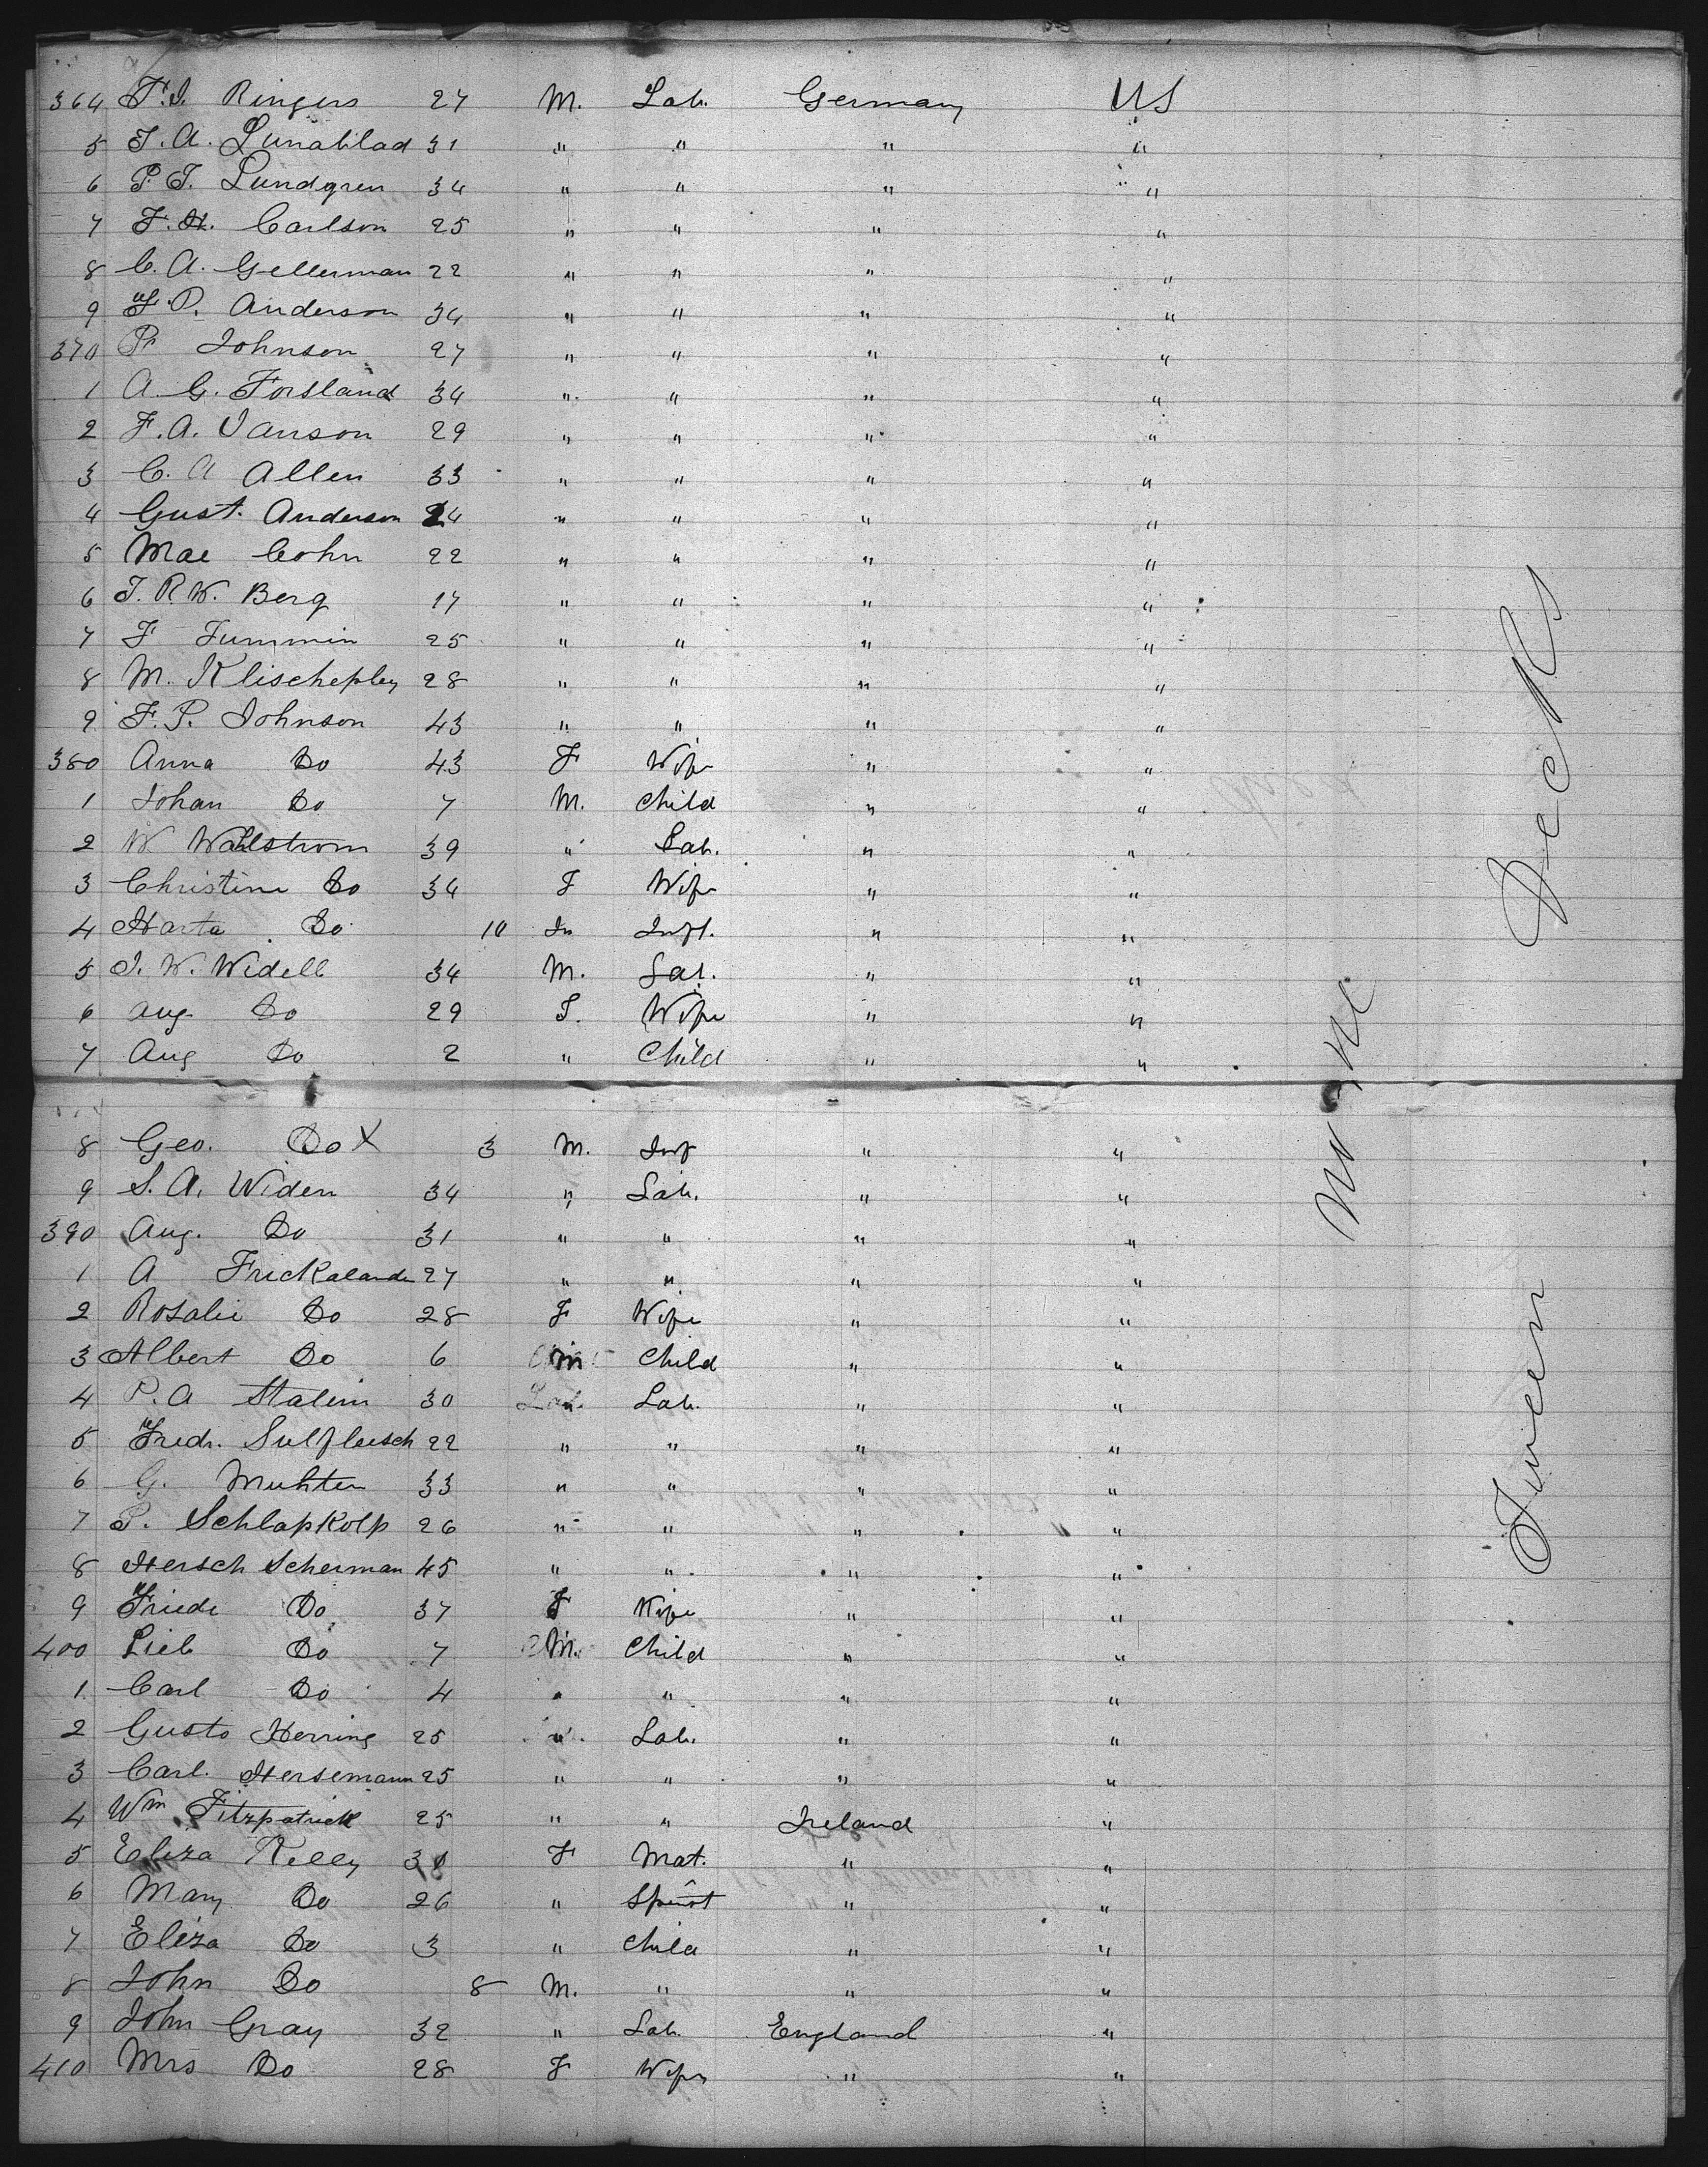 364 F.I. Ringers 27 M. Lab. Germany US
5 J. A. Lundblad 31 " " " "
6 P. J. Lundgren 34 " " " "
7 F. H. Carlson 25 " " " "
8 C. A. Gellerman 22 " " " "
9 F. P. Anderson 34 " " " "
370 P Johnson 27 " " " "
1 A. G. Forsland 34 " " " "
2 F. A. Vanson 29 " " " "
3 C. A Allen 33 " " " "
4 Gust. Anderson 24 " " " "
5 Mae Cohn 22 " " " "
6 J. R. W. Berg 17 " " " "
7 F Jummin 25 " " " "
8 M. Klischepley 28 " " " "
9 F. P. Johnson 43 " " " "
380 Anna Do 43 F Wife " "
1 Johan Do 7 M. Child " "
2 W Wallstrom 39 " Lab. " "
3 Christine Do 34 F Wife " "
4 Harta Do 10 In Inft. " "
5 J. W. Widell 34 M. Lab. " "
6 Aug Do 29 F. Wife " "
7 Aug Do 2 " Child " "
8 Geo. Do X 3 M. Inf " "
9 S. A. Widen 34 " Lab. " "
390 Aug. Do 31 " " " "
1 A Frickalande 27 " " " "
2 Rosalie Do 28 F Wife " "
3 Albert Do 6 m Child " "
4 P. A Stalem 30 " Lab. " "
5 Fredr. Sulfleisch 22 " " " "
6 G. Muhten 33 " " " "
7 P. Schlapkolp 26 " " " "
8 Hersch Scherman 45 " " " "
9 Friede Do 37 F Wife " "
400 Lieb Do 7 M. Child " "
1 Carl Do 4 " " " "
2 Gusto Herring 25 " Lab. " "
3 Carl. Hersemann 25 " " " "
4 Wm Fitzpatrick 25 " " Ireland "
5 Eliza Kelly 31 F Mat. " "
6 Mary Do 26 " Spinst " "
7 Eliza Do 3 " Child " "
8 John Do 8 M. " " "
9 John Gray 32 " Lab. England "
410 Mrs Do 28 F Wife " "
None
Tween Decks